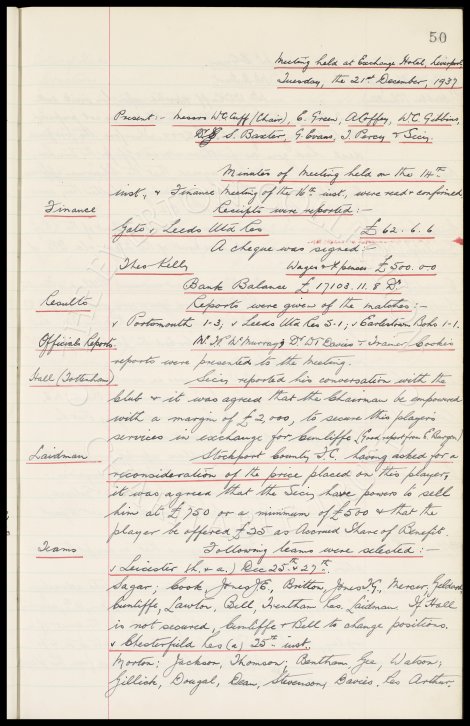 50
Meeting held at Exchange Hotel, Liverpool
Tuesday, the 21st December, 1937
Present:- Messrs W.C. Cuff (Chair), E. Green, A. Coffey, W.C. Gibbins,
Dr S. Baxter, G. Evans, J. Percy & Secy.
Minutes of Meeting held on the 14th
inst, & Finance Meeting of the 16th inst, were read & confirmed
Finance Receipts were reported:-
Gate v. Leeds Utd Res £ 62. 6. 6
A cheque was signed:-
Theo Kelly Wages & Xpenses £500.00
Bank Balance £ 17103. 11. 8 Dr
Results Reports were given of the matches:-
v Portsmouth 1-3, v Leeds Utd Res 5-1, v Earlestown Bohs 1-1.
Officials Reports Mr H. McMurray, Dr D.T. Davies & Trainer Cooke's
reports were presented to the Meeting.
Hall (Tottenham) Secy reported his conversation with the
Club & it was agreed that the Chairman be empowered
with a margin of £2,000, to secure this players
services in exchange for Cunliffe. (Good report from E. Bargen)
Laidman Stockport County F.C. having asked for a
reconsideration of the price placed on this player,
it was agreed that the Secy have powers to sell
him at £750 or a minimum of £500 & that the
player be offered £35 as Accrued Share of Benefit.
Teams Following teams were selected:-
v Leicester (h. & a.) Dec 25th & 27th.
Sagar; Cook, Jones J.E., Britton, Jones T.G., Mercer, Geldard
Cunliffe, Lawton, Bell, Trentham. Res. Laidman. If Hall
is not secured, Cunliffe & Bell to change positions.
v Chesterfield Res (a) 25th inst.
Morton; Jackson, Thomson; Bentham, Gee, Watson;
Gillick, Dougal, Dean, Stevenson, Davies. Res Arthur.